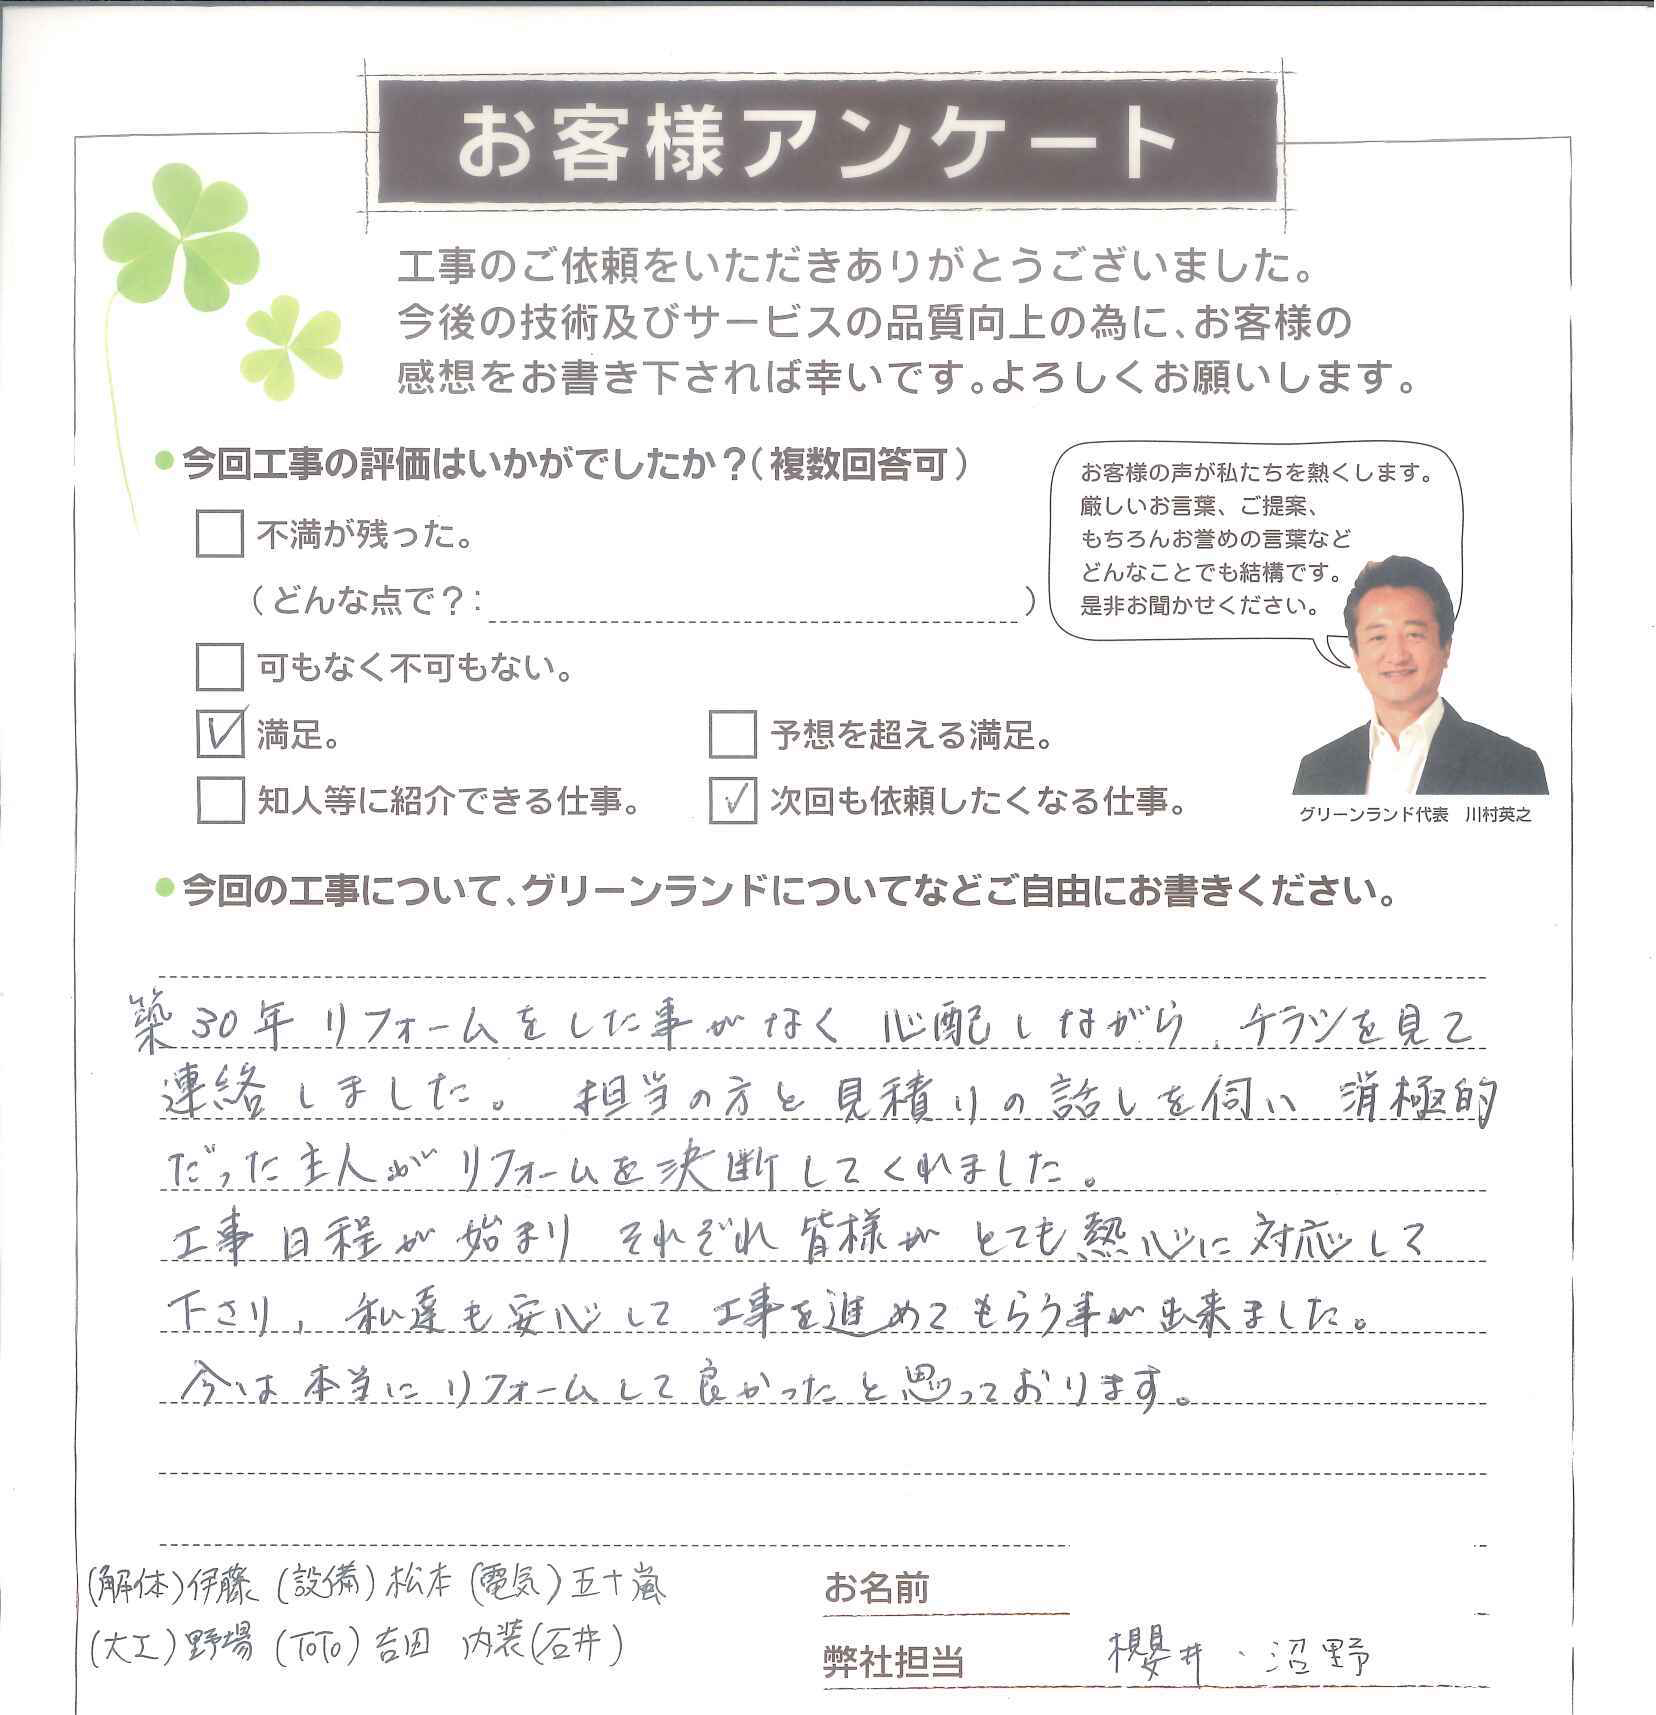 お客様アンケート
工事のご依頼をいただきありがとうございました。
今後の技術及びサービスの品質向上の為に、お客様の
感想をお書き下されば幸いです。よろしくお願いします。
今回工事の評価はいかがでしたか？（複数回答可）
不満が残った。
（どんな点で？：　）
可もなく不可もない。
満足。
予想を超える満足。
知人等に紹介できる仕事。
次回も依頼したくなる仕事。
お客様の声が私たちを熱くします。
厳しいお言葉、ご提案、
もちろんお誉めの言葉など
どんなことでも結構です。
是非お聞かせください。
グリーンランド代表　川村英之
今回の工事について、グリーンランドについてなどご自由にお書きください。
築30年 リフォームをした事がなく 心配しながら、チラシを見て
連絡しました。 担当の方と見積りの話しを伺い 消極的
だった主人がリフォームを決断してくれました。
工事日程が始まり それぞれ皆様が とても熱心に対応して
下さり、私達も安心して 工事を進めてもらう事が出来ました。
今は本当にリフォームして良かったと思っております。
(解体)伊藤 (設備)松本 (電気)五十嵐
(大工)野場 (TOTO)吉田 内装(石井)
お名前
弊社担当 櫻井・沼野